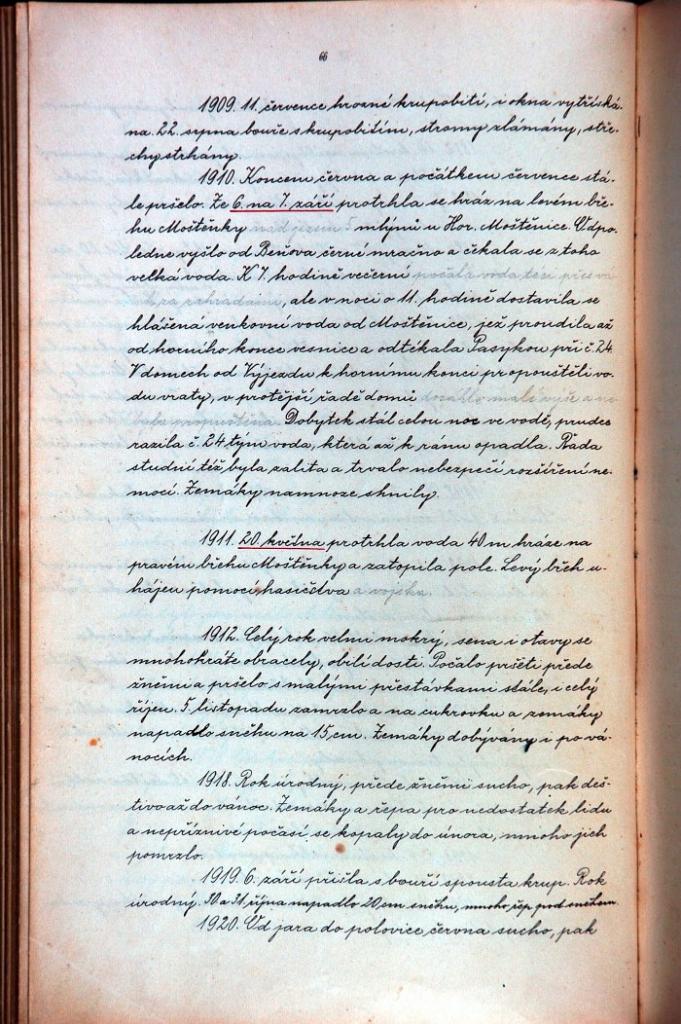 66
1909. 11. července hrozné krupobití, i okna vytříská-
na. 22. srpna bouře s krupobitím, stromy zlámány, stře-
chy strhány.
1910. Koncem června a počátkem července stá-
le pršelo. Ze 6. na 7. září protrhla se hráz na levém bře-
hu Moštěnky nad jezem 5 mlýnů u Hor. Moštěnice. Odpo-
ledne vyšlo od Beňova černé mračno a čekala se z toho
velká voda. K 7. hodině večerní počala voda téci přes
za zahradami, ale v noci o 11. hodině dostavila se
hlášená venkovní voda od Moštěnice, jež proudila až
od horního konce vesnice a odtékala Pasykou při č. 24.
V domech od Výjezdu k hornímu konci propouštěli vo-
du vraty, v protější řadě domů dosáhla malé výše a ne-
byla propuštěna. Dobytek stál celou noc ve vodě, prudce
razila č. 24 tým voda, která až k ránu opadla. Řada
studní též byla zalita a trvalo nebezpečí rozšíření ne-
mocí. Zemáky namnoze shnily.
1911. 20. května protrhla voda 40 m hráze na
pravém břehu Moštěnky a zatopila pole. Levý břeh u-
hájen pomocí hasičstva a vojska.
1912. Celý rok velmi mokrý, sena i otavy se
mnohokráte obracely, obilí dosti. Počalo pršeti přede
žněmi a pršelo s malými přestávkami stále, i celý
říjen. 5. listopadu zamrzlo a na cukrovku a zemáky
napadlo sněhu na 15 cm. Zemáky dobývány i po vá-
nocích.
1918. Rok úrodný, přede žněmi sucho, pak deš-
tivo až do vánoc. Zemáky a řepa pro nedostatek lidu
a nepříznivé počasí se kopaly do února, mnoho jich
pomrzlo.
1919. 6. září přišla s bouří spousta krup. Rok
úrodný. 30 a 31. října napadlo 20 cm sněhu, mnoho řep. pod sněhem.
1920. Od jara do polovice června sucho, pak